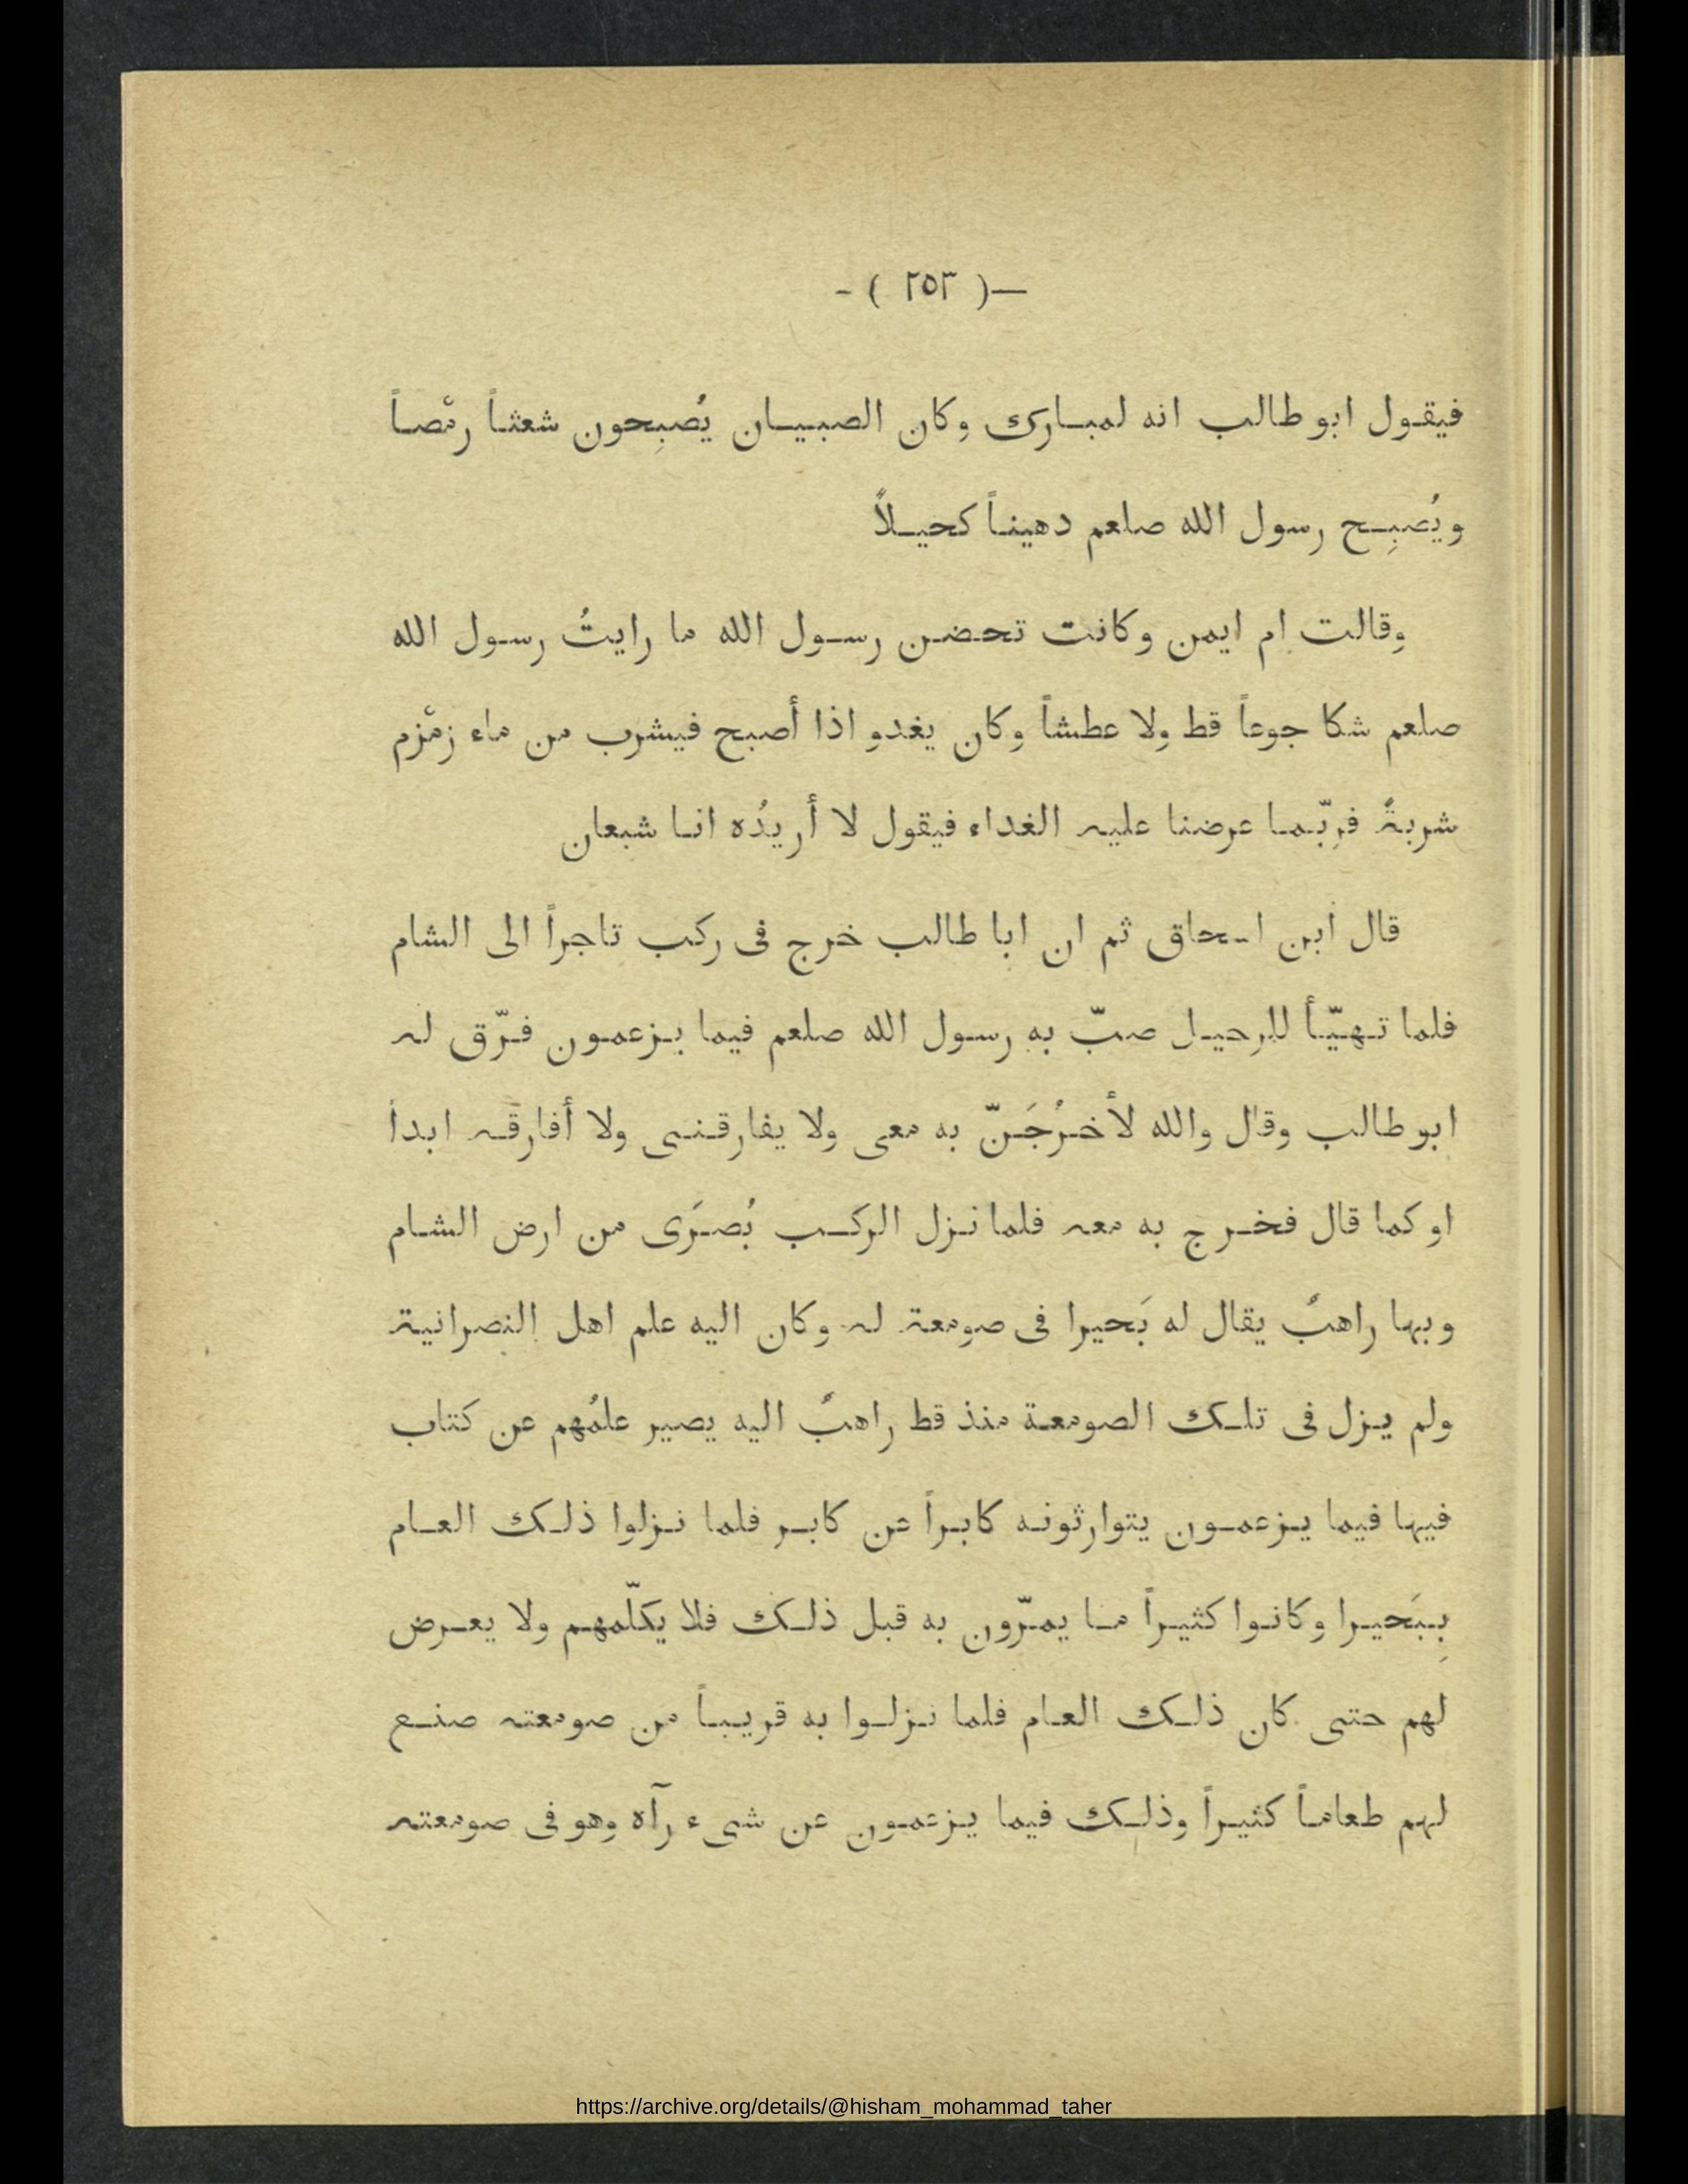 —( ٢٥٣ )-
فيقول ابو طالب انه لمبارك وكان الصبيان يُصبِحون شعثاً رمْصاً
ويُصبِح رسول الله صلعم دهيناً كحيلاً
وقالت ام ايمن وكانت تحضن رسول الله ما رايتُ رسول الله
صلعم شكا جوعاً قط ولا عطشاً وكان يغدو اذا أصبح فيشرب من ماء زمْزم
شربةً فربّما عرضنا عليه الغداء فيقول لا أريدُه انا شبعان
قال ابن اسحاق ثم ان ابا طالب خرج فى ركب تاجراً الى الشام
فلما تهيّأ للرحيل صبّ به رسول الله صلعم فيما يزعمون فرّق له
ابو طالب وقال والله لأخرُجَنّ به معى ولا يفارقنى ولا أفارقه ابداً
او كما قال فخرج به معه فلما نزل الركب بُصرَى من ارض الشام
وبها راهبٌ يقال له بَحيرا فى صومعة له وكان اليه علم اهل النصرانية
ولم يزل فى تلك الصومعة منذ قط راهبٌ اليه يصير علمُهم عن كتاب
فيها فيما يزعمون يتوارثونه كابراً عن كابر فلما نزلوا ذلك العام
بِبَحيرا وكانوا كثيراً ما يمرّون به قبل ذلك فلا يكلّمهم ولا يعرض
لهم حتى كان ذلك العام فلما نزلوا به قريباً من صومعته صنع
لهم طعاماً كثيراً وذلك فيما يزعمون عن شىء رآه وهو فى صومعته
https://archive.org/details/@hisham_mohammad_taher